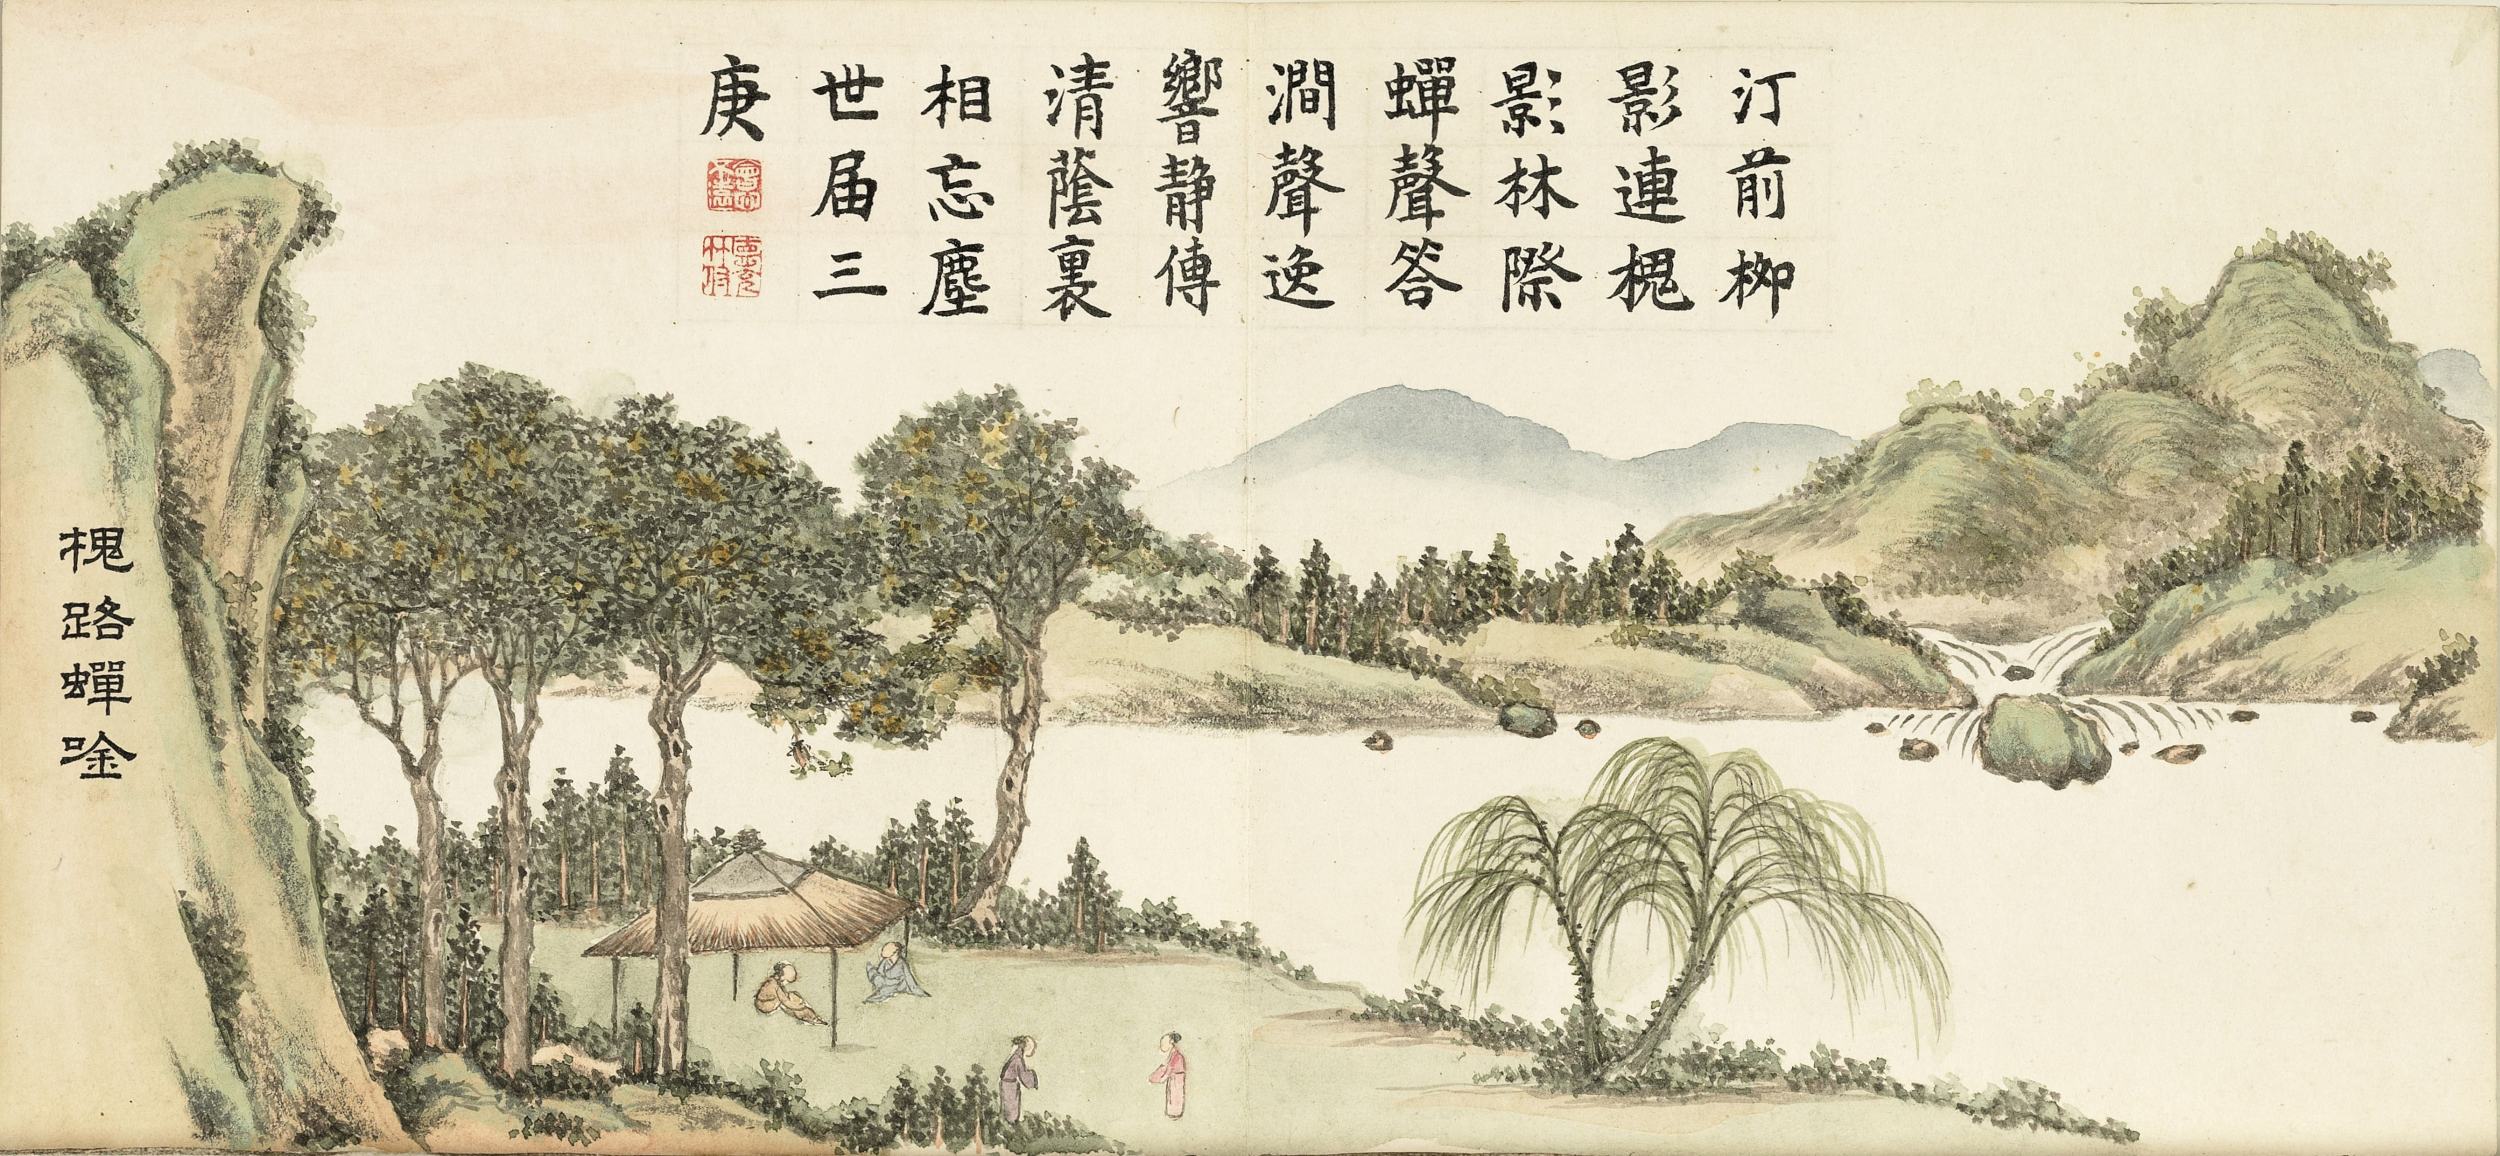 汀前栁
影連槐
影林際
蟬聲答
澗聲逸
響静傳
清蔭裏
相忘塵
世届三
庚
槐路蟬唫